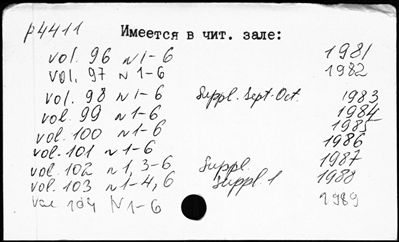 p4411
Имеется в чит. зале:
vol. 96 N 1-6 1981
vol. 97 N 1-6 1982
vol. 98 N 1-6 Suppl. Sept.-Oct. 1983
vol. 99 N 1-6 1984
vol. 100 N 1-6 1985
vol. 101 N 1-6 1986
vol. 102 N 1, 3-6 Suppl. 1987
vol. 103 N 1-4, 6 Suppl. 1 1988
vol 104 N 1-6 1989